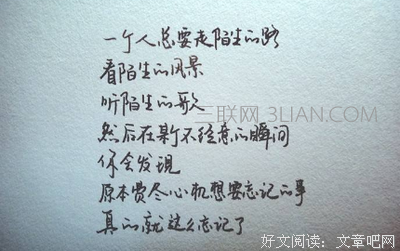 一个人总要走陌生的路
看陌生的风景
听陌生的歌
三联网 3LIAN.COM
然后在某个不经意的瞬间
你会发现
原本费尽心机想要忘记的事
真的就这么忘记了
好文阅读：文章吧网